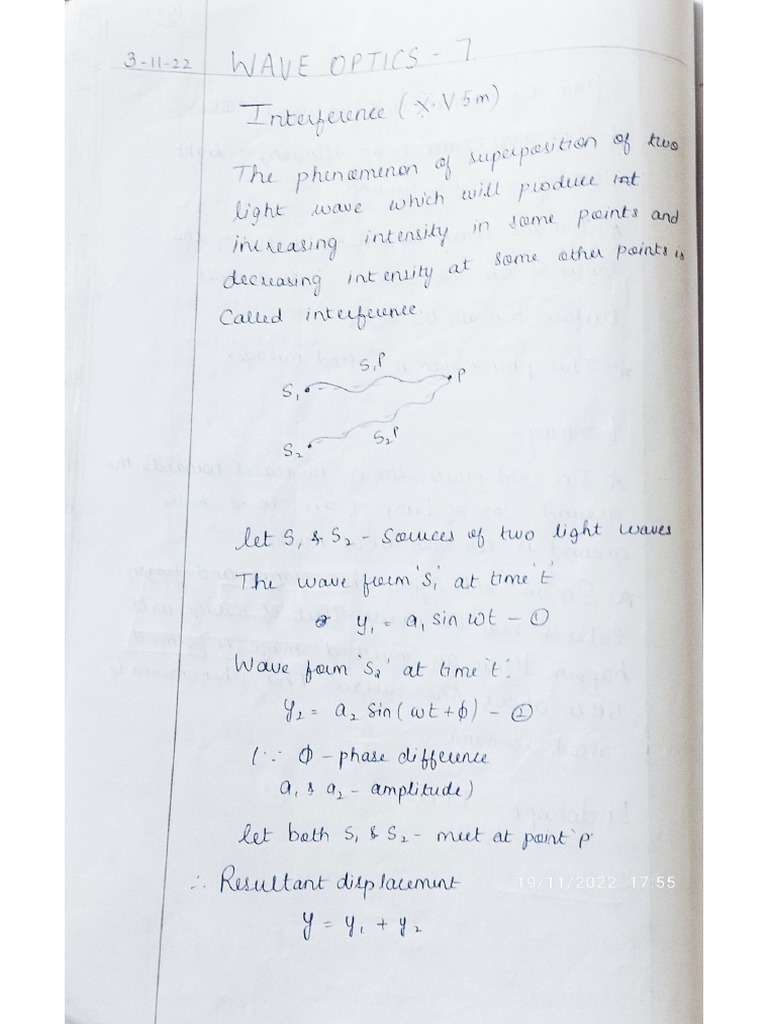 3-11-22 WAVE OPTICS - 7
Interference (X.V 5m)
The phenomenon of superposition of two
light wave which will produce
increasing intensity in some points and
decreasing intensity at some other points is
Called interference.
S₁P
S₁ P
S₂ S₂P
let S₁ & S₂ - Sources of two light waves
The wave form 'S₁' at time 't'
y₁ = a₁ sin ωt - ①
Wave form 'S₂' at time 't'.
y₂ = a₂ sin (ωt + ϕ) - ②
(∵ ϕ - phase difference
a₁ & a₂ - amplitude)
let both S₁ & S₂ - meet at point 'p'
∴ Resultant displacement
19/11/2022 17.55
y = y₁ + y₂